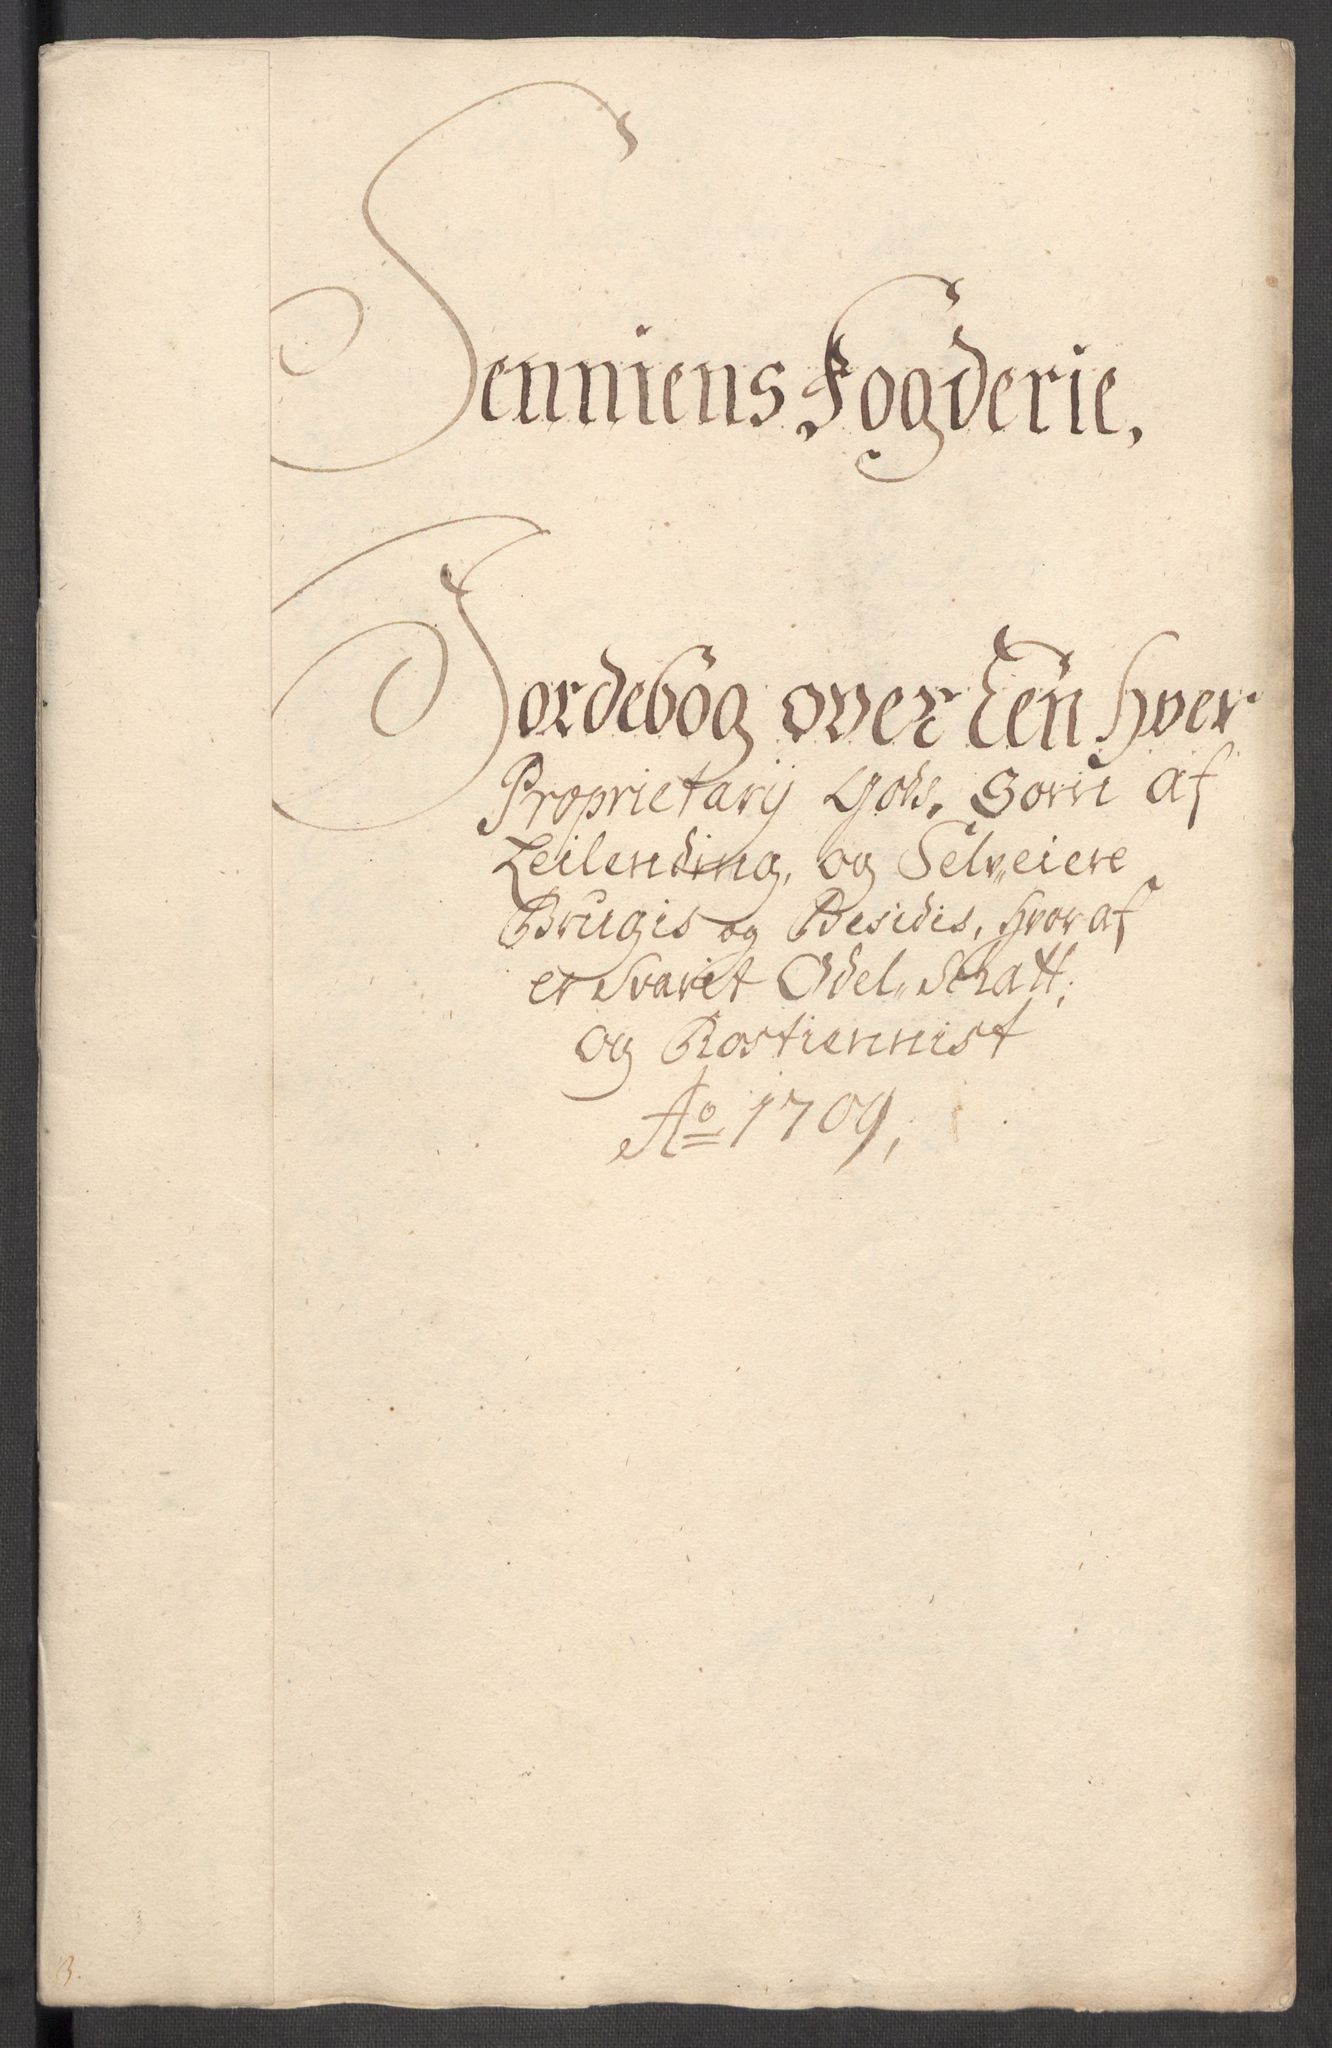 Senniens Fogderie,
Jordebog over Een hver
Proprietarij Gods, Som af
Leilending, og Selv„eiere
Brugis og Besidis, hvoraf
er Svaret Odel„Schatt,
og Rostiennist
Ao 1709,
B.